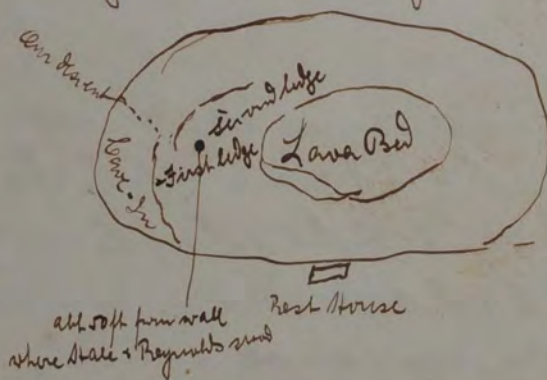 Our descent
Cave-In
Second ledge
First ledge
Lava Bed
Rest House
abt 50 ft from wall
where Hale & Reynolds stood